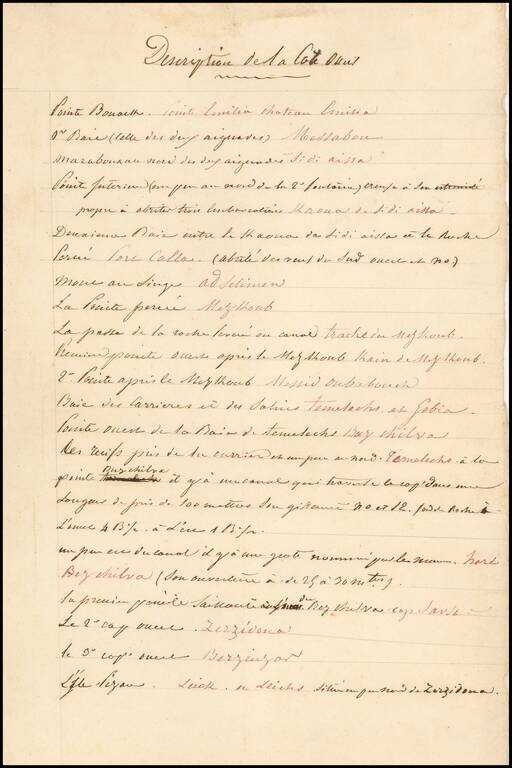 Description de la Côte Ouest
Pointe Bonaeth. Pointe Emilia chateau Emilia
1re Baie (Celle des deux aiguades) Messabou
marabou au nord des deux aiguades Sidi aissa
Pointe Interieure (un peu au nord de la 2e fontaine) creuse à son extremité
propre à abriter trois Embarcations Kaoua de Sidi aissa.
Deuxieme Baie entre le Kaoua de Sidi aissa et la Roche
Percée Port Calla. (abrité des vents du Sud ouest et no)
Morne au Singe ad Selimen
La Pointe percée Mezhoub
La passe de la roche Percée ou canal trach du Mezhoub.
Premiere pointe ouest après le Mezhoub Kain de Mezhoub.
2e Pointe après le Mezhoub Messid oubabouch
Baie des Carrieres et des Salines temelechs et Gobia.
Pointe ouest de la Baie de temelechs Buz chilva
Les recifs près de la carriere et un peu au nord. Temelechs. à la
pointe Buz chilva il y a un canal qui traverse le cap dans une
Longueur de près de 100 mettres Son gisement no et
L'une 4 B à L'
un peu du canal il y a une grote nommée par les maures.
Bez chilva (Son ouverture à de 25 à 30 mtres).
la premiere pointe Saillante de Bez chilva cap
Le 2e cap ouest. Zerzidona
le 3e cap ouest Berzinzar
L'Ile Pizan. Leick. ou Leichs située un peu nord de Zerzidona.